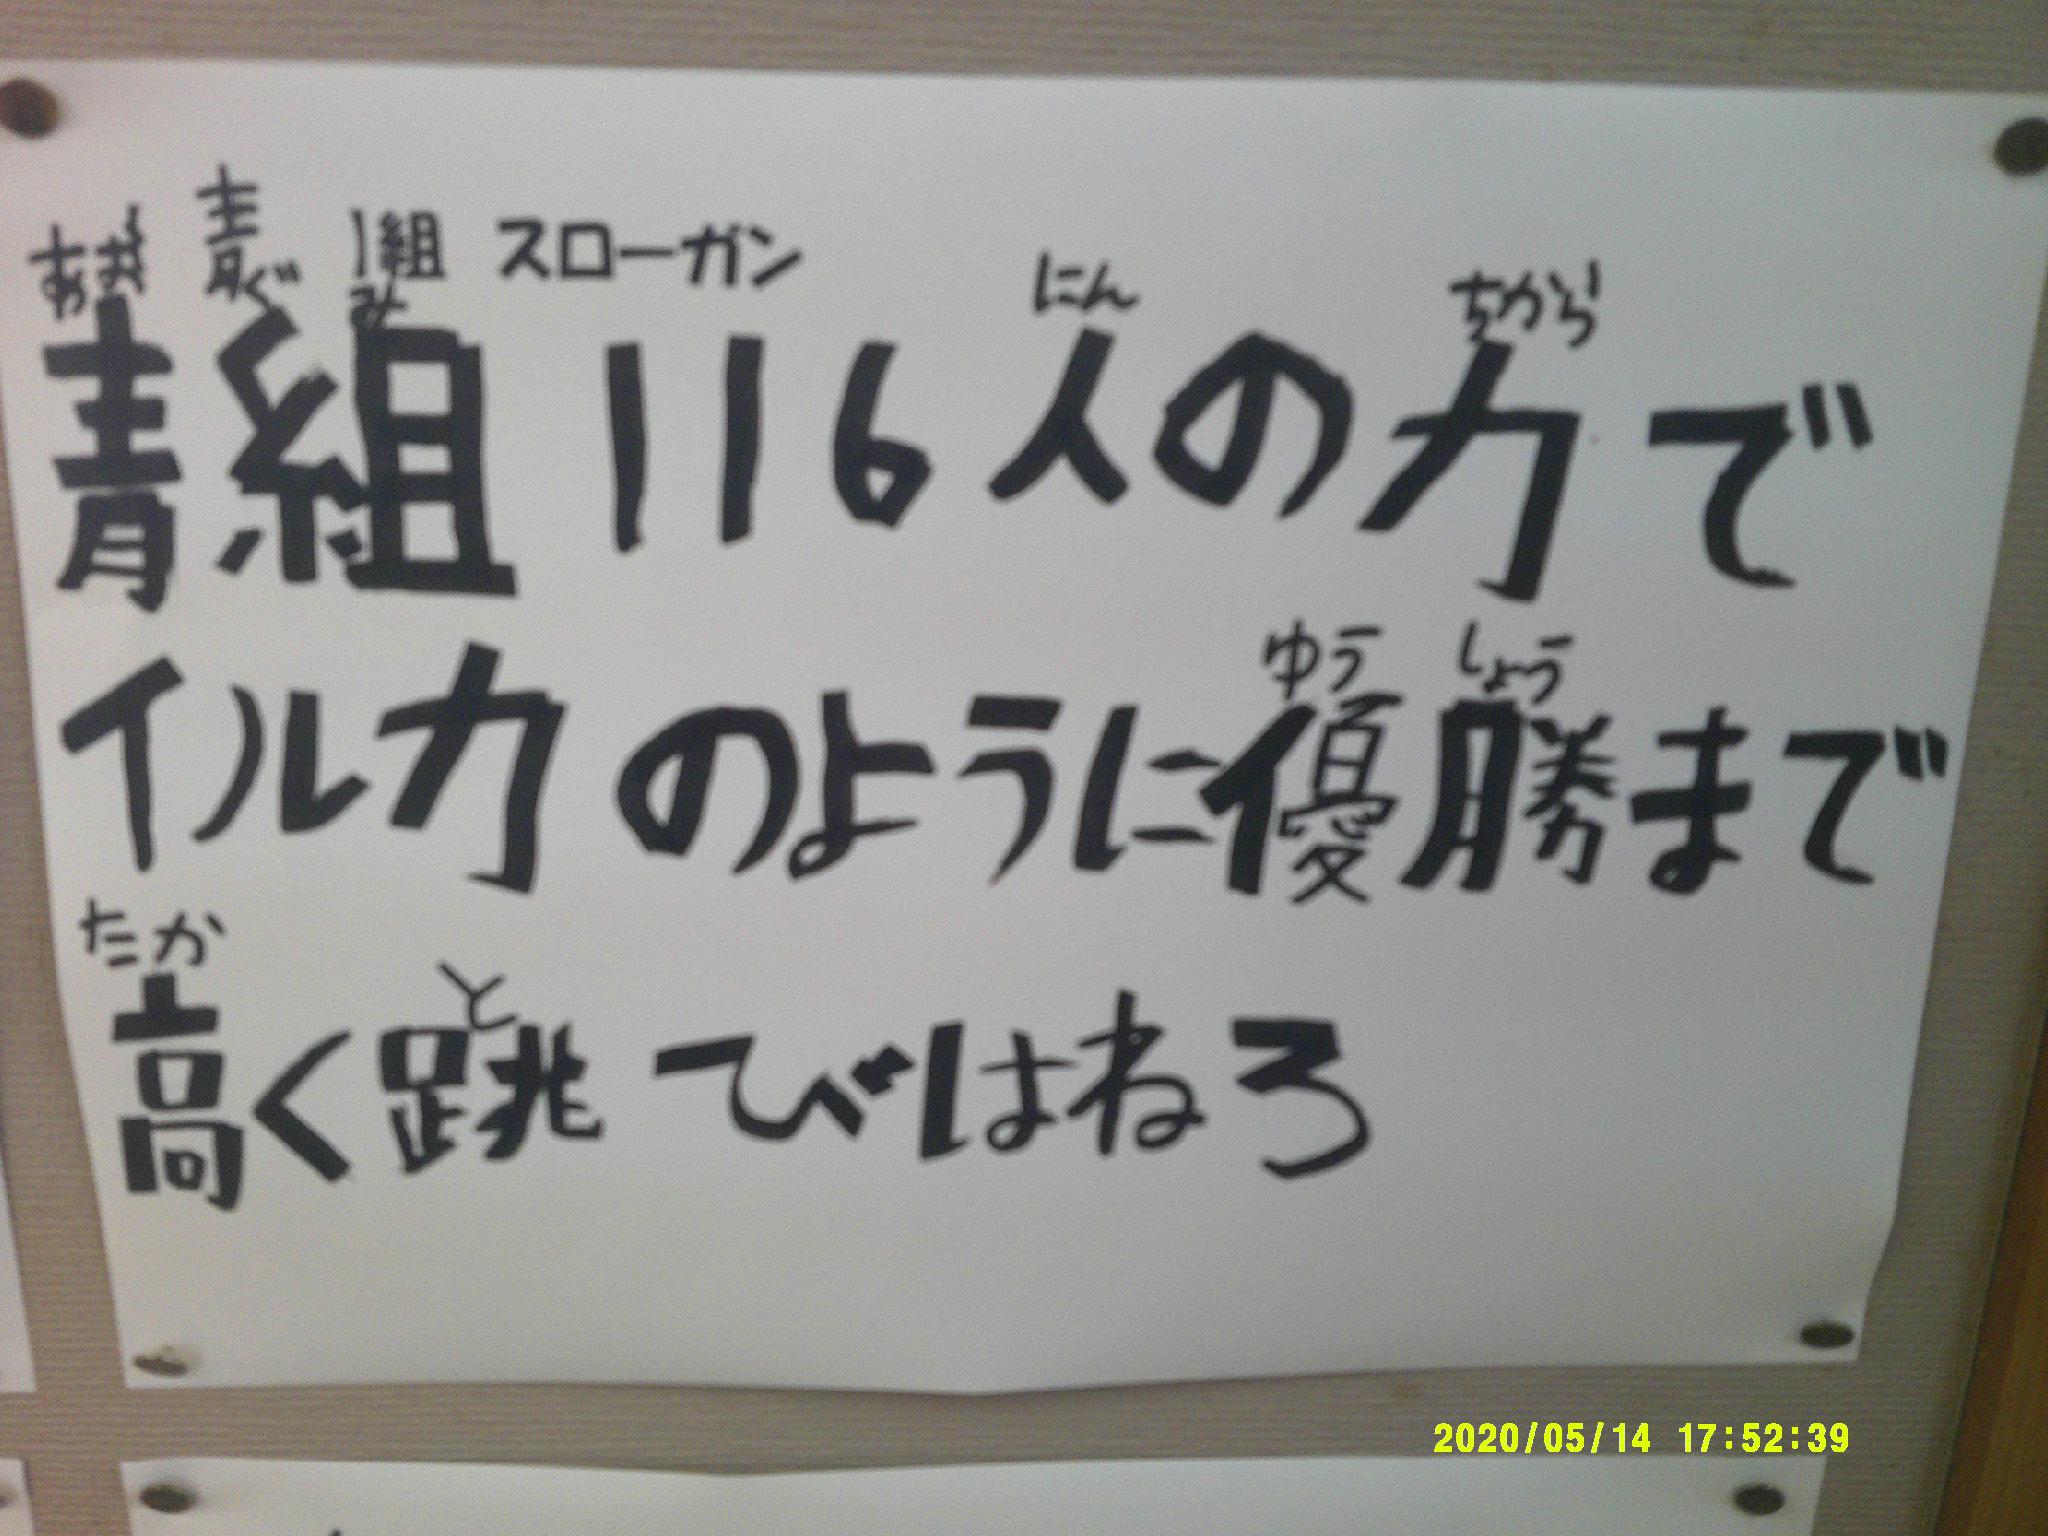 青 1組 スローガン
あお ぐみ にん ちから
青組116人の力で
ゆう しょう
イルカのように優勝まで
たか と
高く跳びはねろ
2020/05/14 17:52:39